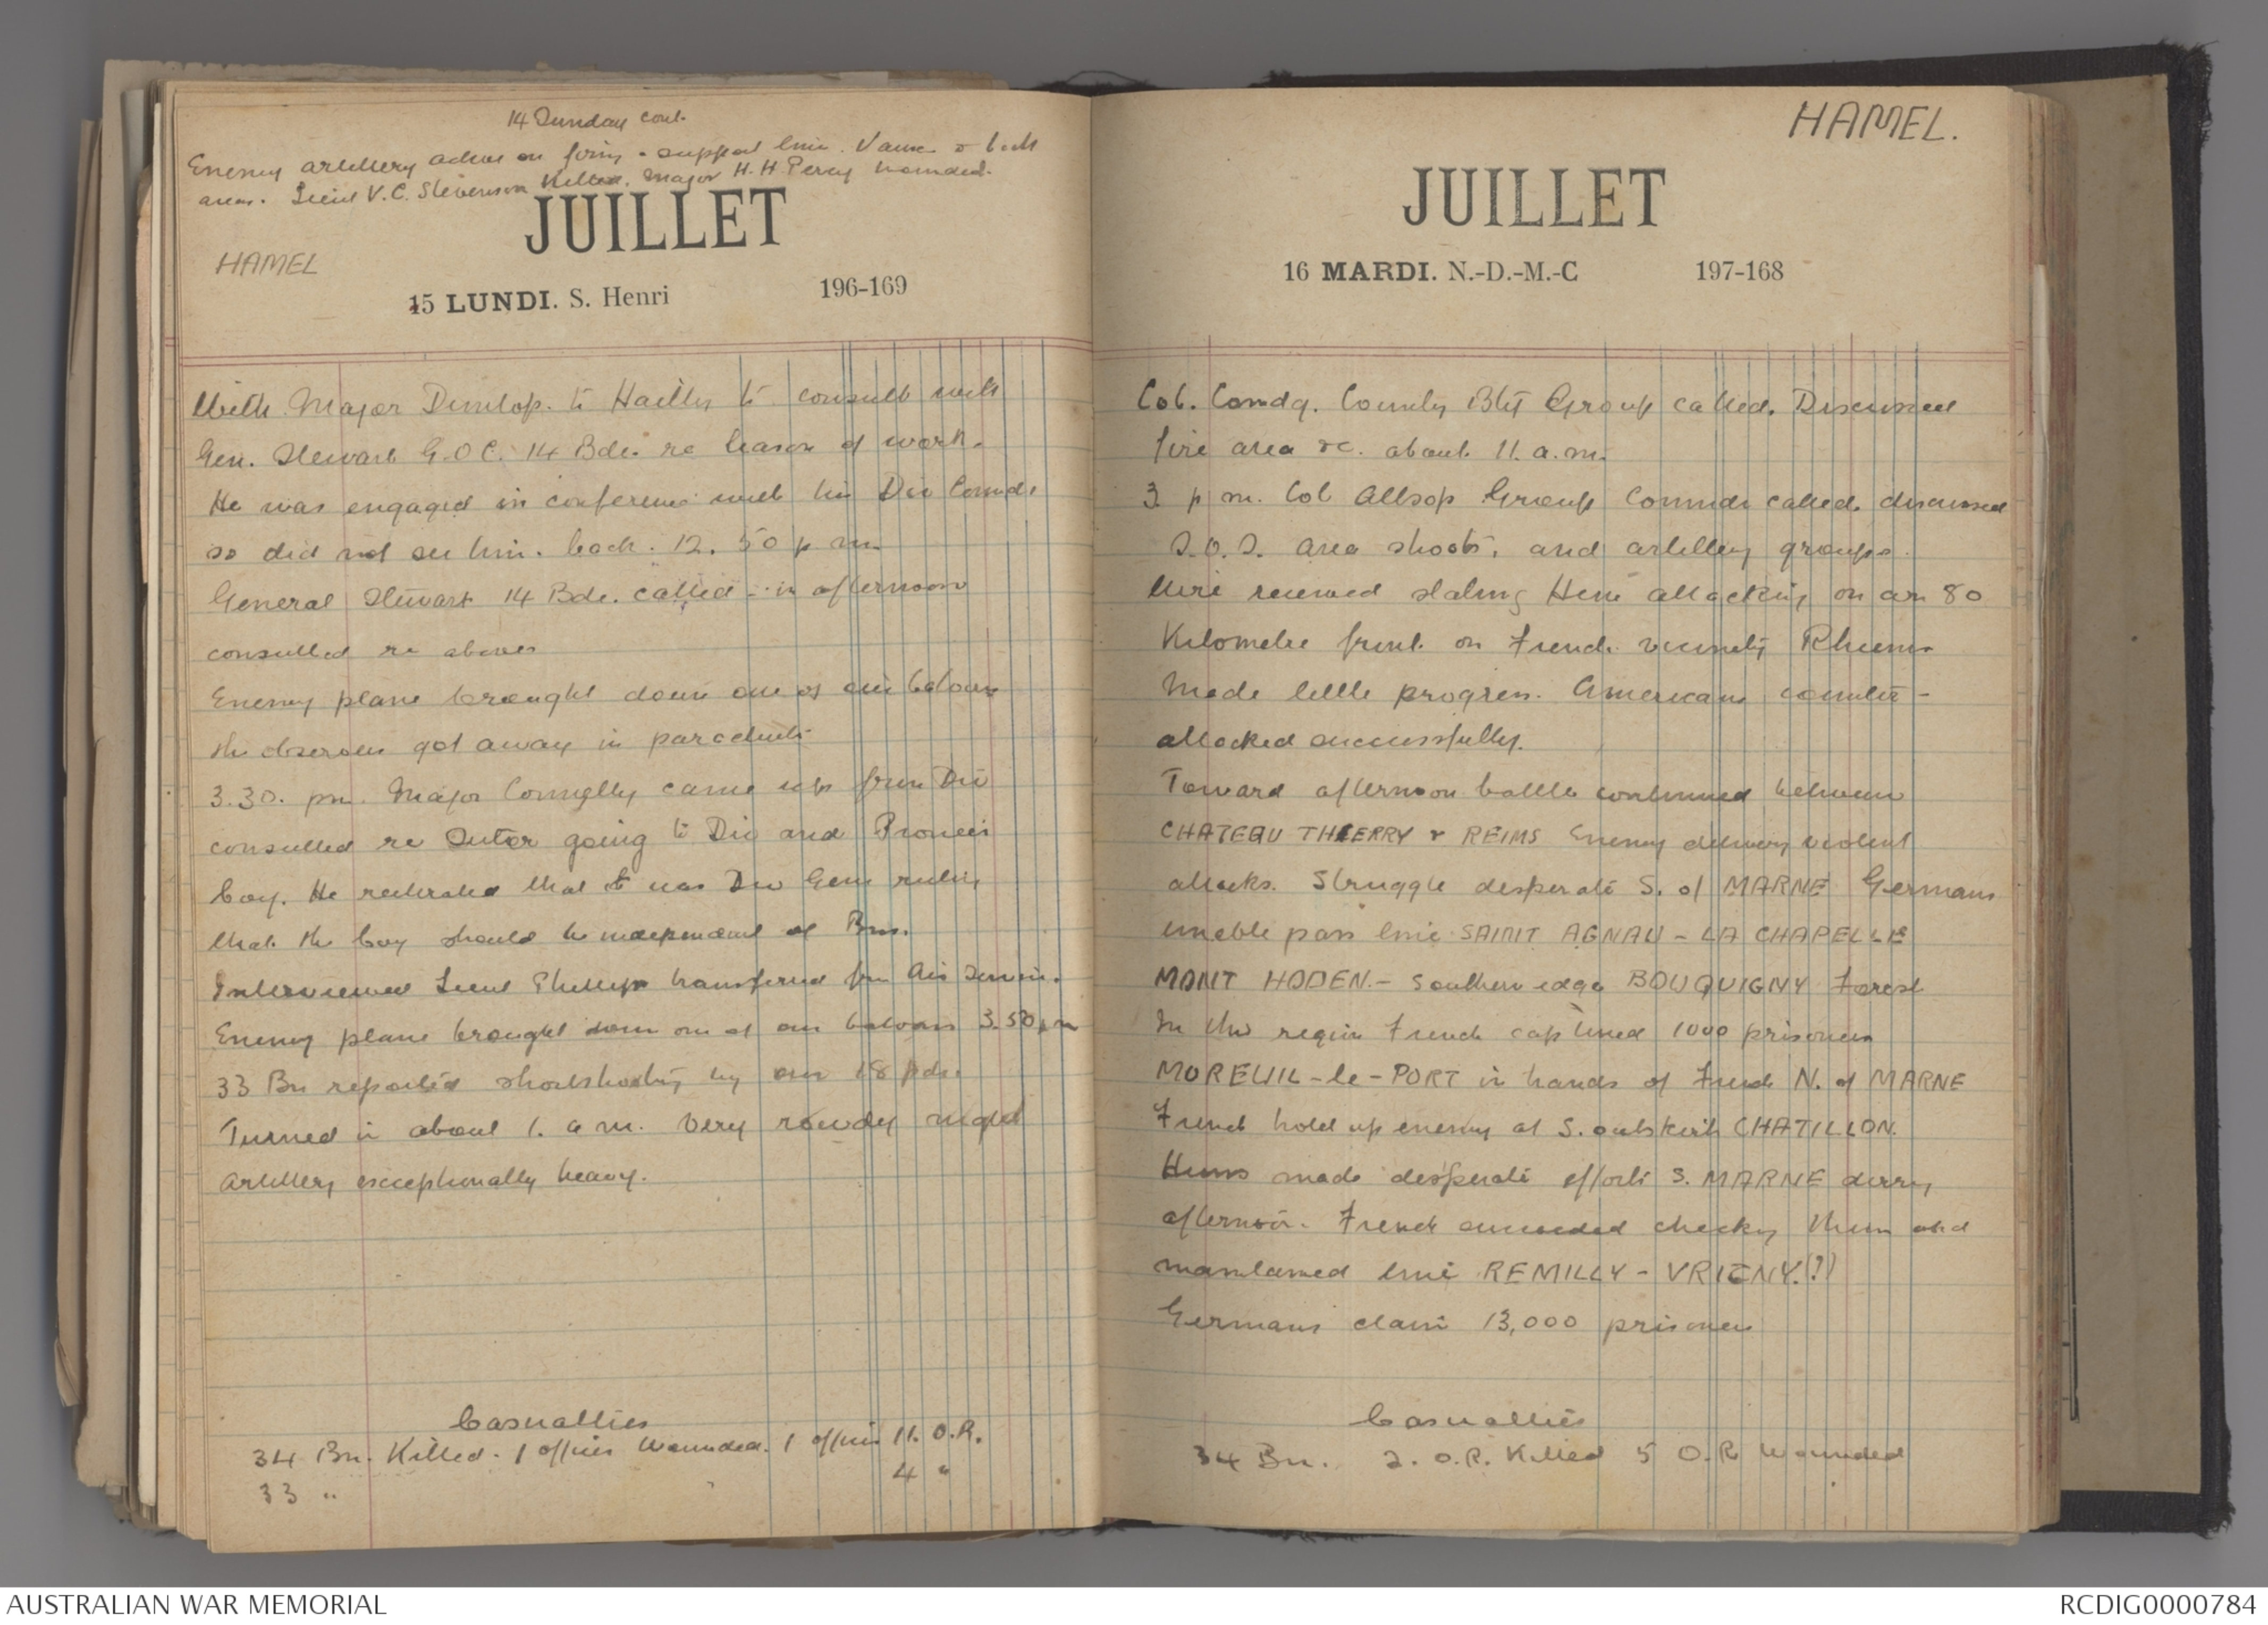 14 Sunday cont.
Enemy artillery active on firing & support line. Vaire & back
areas. Lieut V.C. Stevenson Killed. Major H.H Percy wounded.
JUILLET
HAMEL
15 LUNDI. S. Henri 196-169
With Major Dunlop. to Hailles to consult with
Gen. Stewart G.O.C. 14 Bde. re liason of work.
He was engaged in conference with his Div Comdr
so did not see him. back. 12.50 p m.
General Stewart 14 Bde. called in afternoon
consulted re above
Enemy plane brought down one of our baloons
the observer got away in parachute
3.30. pm. Major Connelly came up from Div
consulted re Sutor going to Div and Pioneer
Coy. He reiterated that it was Div Gens ruling
that the Coy should be independent of Bns.
Interviewed Lieut Phillips transferred from Air Service.
Enemy plane brought down one of our baloons 3.50 pm
33 Bn reported shortshooting by our 18 pdr.
Turned in about 1. a m. Very rowdy night
Artillery exceptionally heavy.
Casualties
34 Bn. Killed. 1 officer Wounded. 1 officer 11. O.R.
33 " 4 "
HAMEL.
JUILLET
16 MARDI. N.-D.-M.-C 197-168
Col. Comdg. County Bty Group called. Discussed
fire area &c. about 11. a.m.
3 p m. Col Allsop Group Commdr called. discussed
S.O.S. area shoots, and artillery groups.
Wire received stating Hun attacking on an 80
Kilometre front on French vicinity Rheims
Made little progress. Americans counter-
attacked successfully.
Toward afternoon battle continued between
CHATEAU THIERRY & REIMS Enemy delivery violent
attacks. Struggle desperate S. of MARNE Germans
unable pass line SAINT AGNAU - LA CHAPELLE
MONT HODEN. - Southern edge BOUQUIGNY Forest
In this region French captured 1000 prisoners
MOREUIL-le-PORT in hands of French N. of MARNE
French hold up enemy at S. outskirts CHATILLON.
Huns made desperate efforts S. MARNE during
afternoon. French succeeded checking them and
maintained line REMILLY - VRIGNY.(?)
Germans claim 13,000 prisoners
Casualties
34 Bn. 2. O.R. Killed 5 O.R. Wounded
AUSTRALIAN WAR MEMORIAL
RCDIG0000784